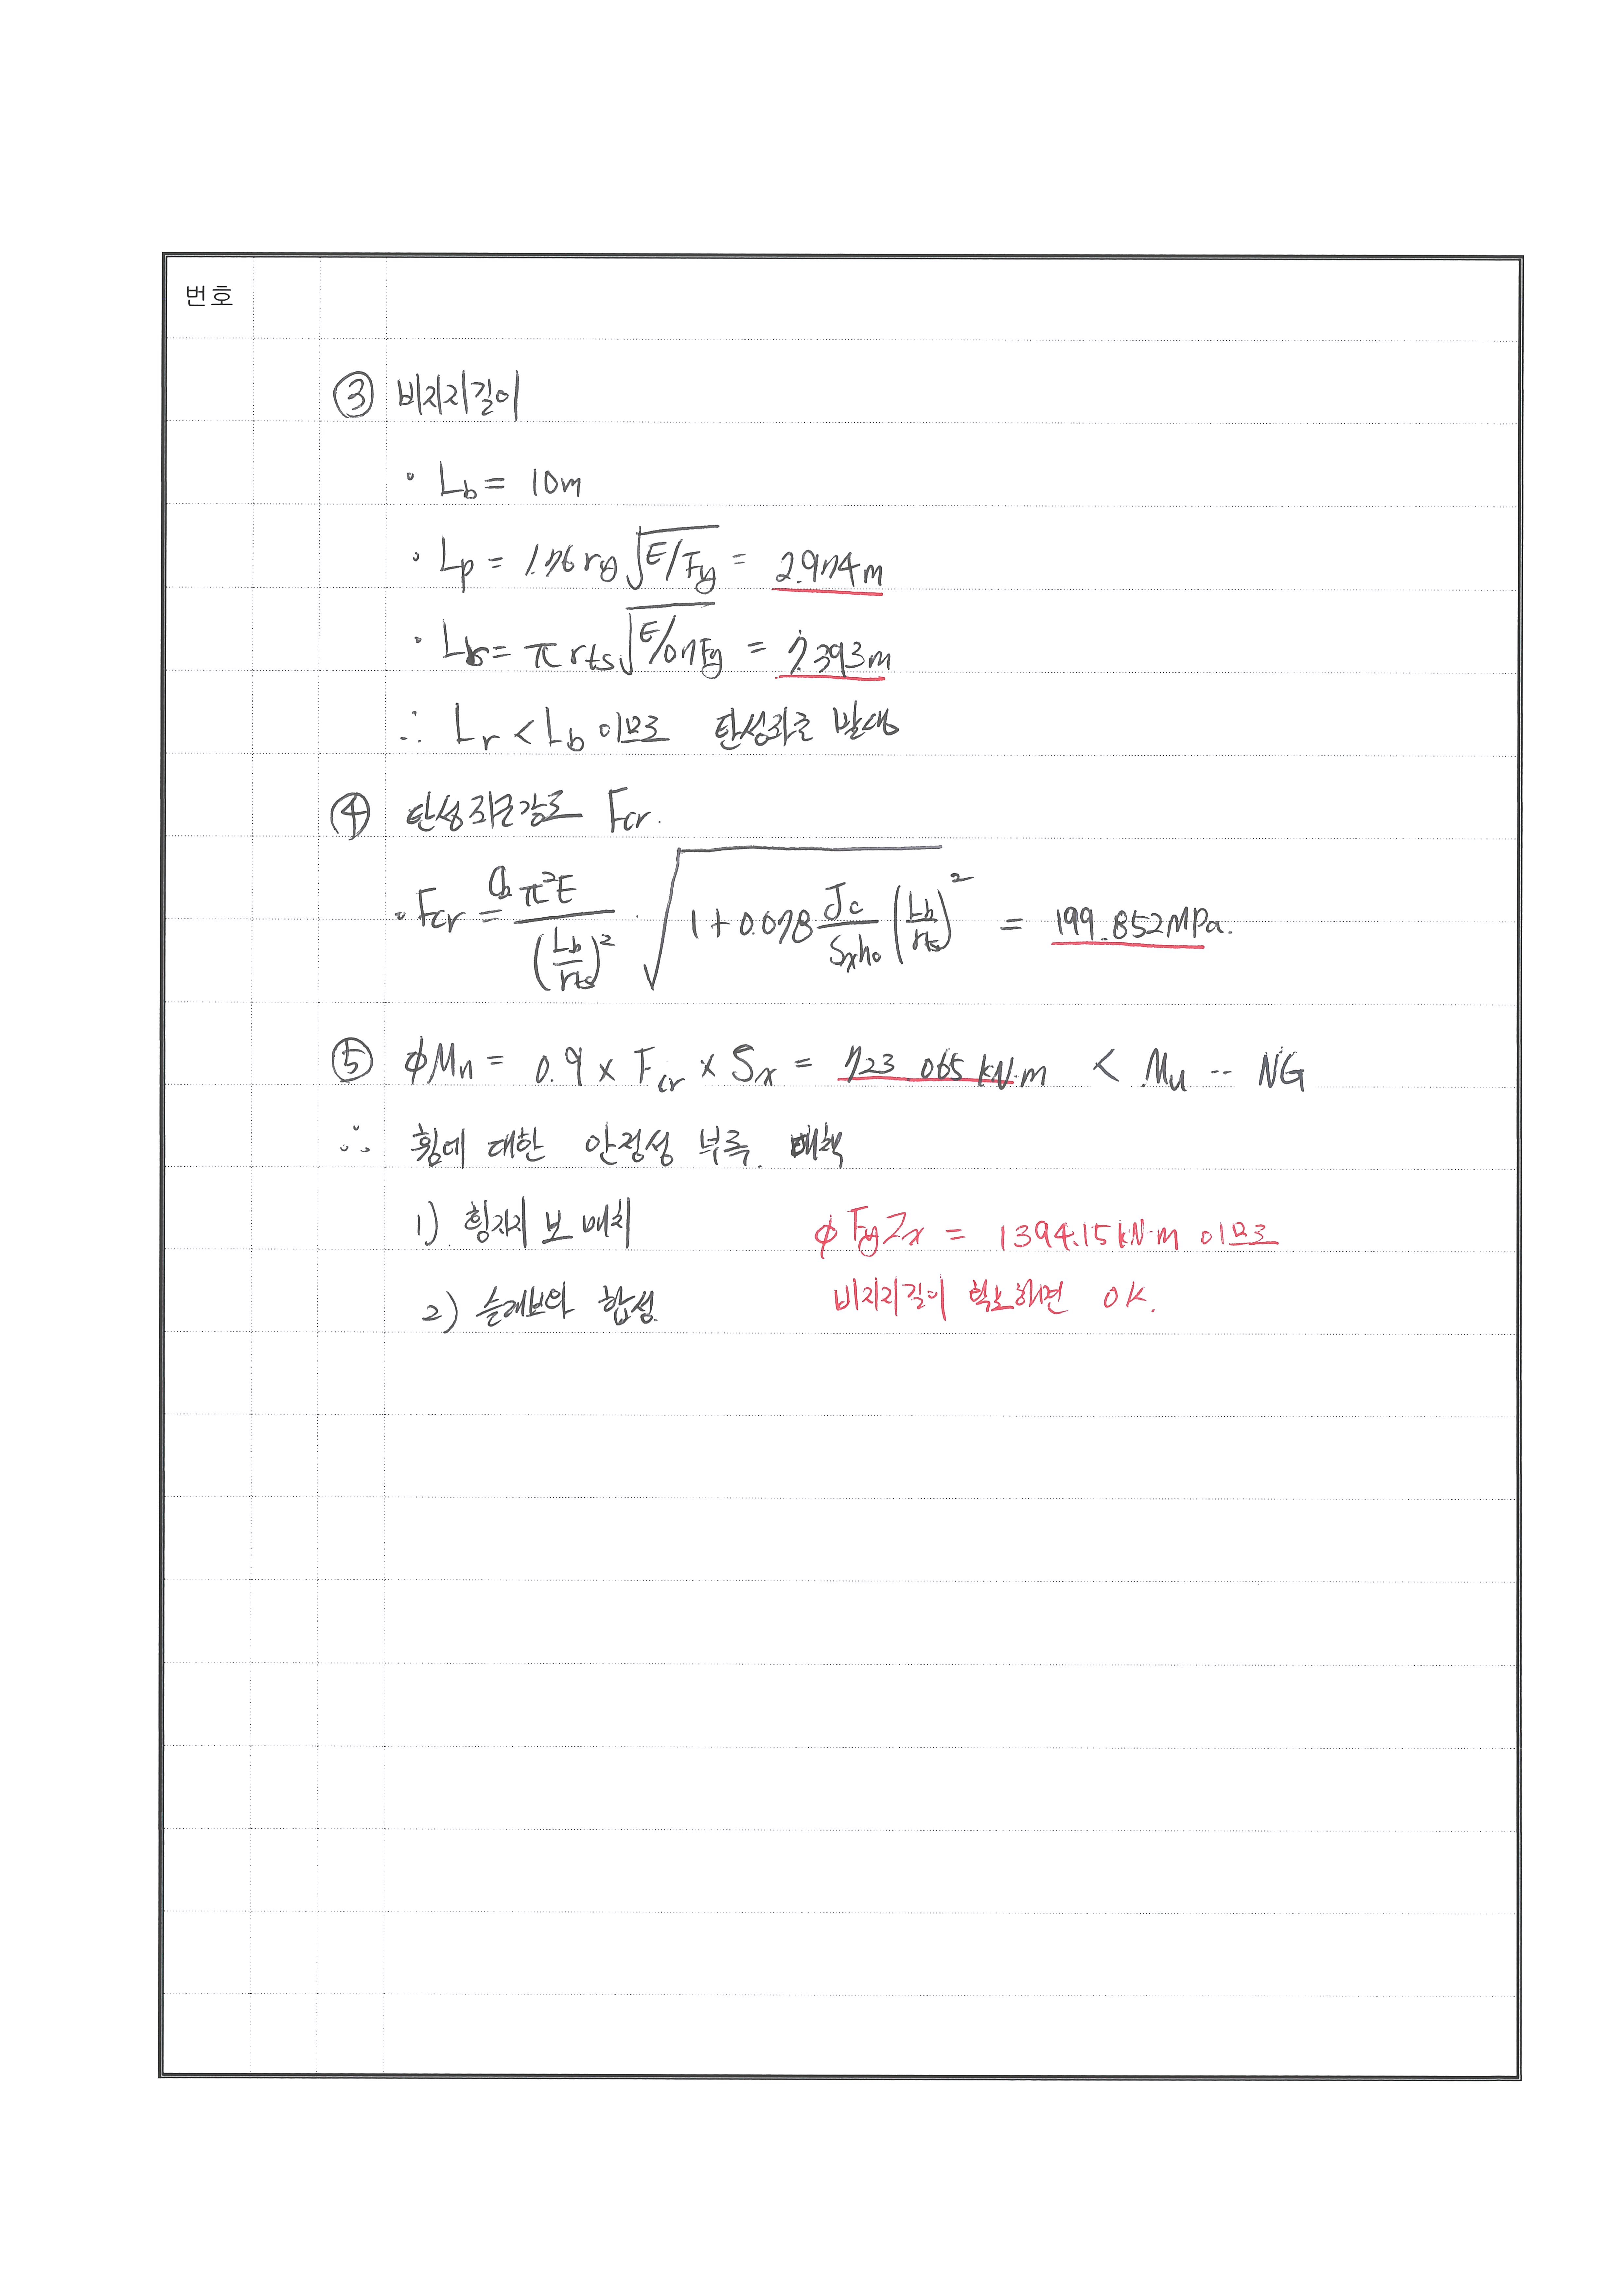 번호
③ 비지지길이
· Lb = 10m
· Lp = 1.76 ry √(E/Fy) = 2.974m
· Lr = π rts √(E/0.7Fy) = 7.393m
∴ Lr < Lb 이므로 탄성좌굴 발생
④ 탄성좌굴강도 Fcr.
· Fcr = Cb π²E / (Lb/rts)² · √(1 + 0.078 Jc/(Sxho) (Lb/rts)²) = 199.852MPa.
⑤ ϕMn = 0.9 × Fcr × Sx = 723.065 kN·m < Mu -- NG
∴ 횡에 대한 안정성 부족. 대책
1) 횡지지 보 배치 ϕFyZx = 1394.15kN·m 이므로
2) 슬래브와 합성 비지지길이 확보하면 OK.